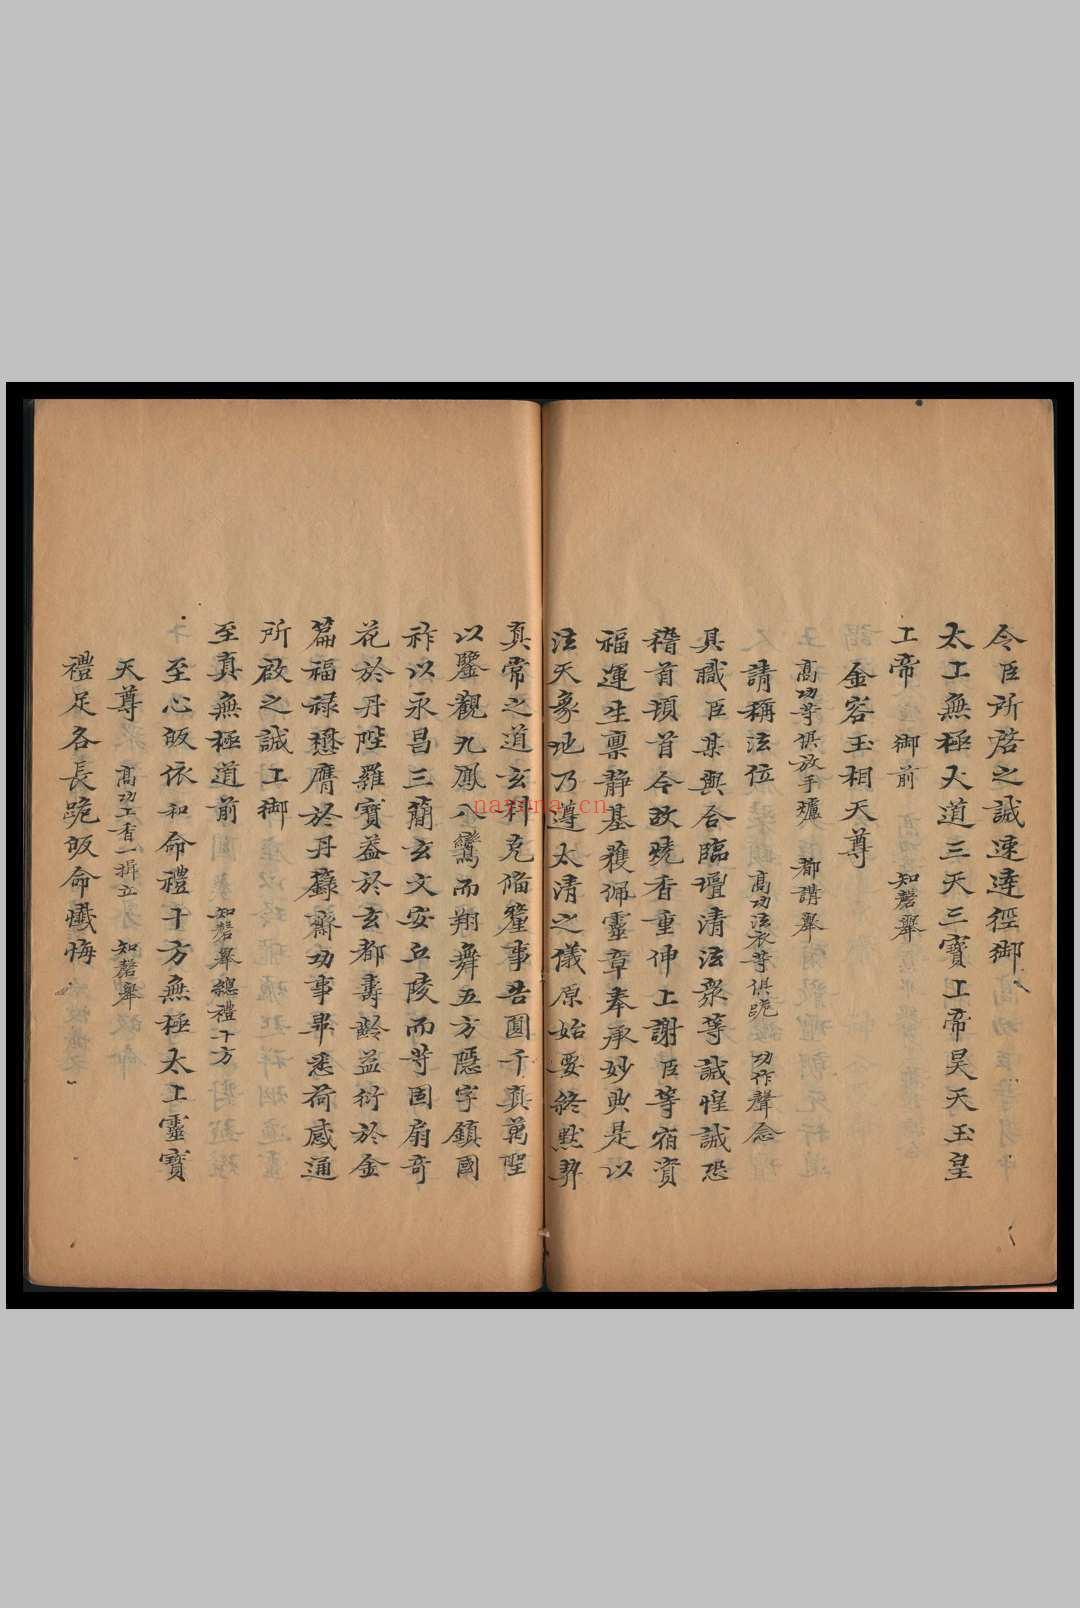 令臣所啓之誠速達徑御
太上無極大道三天三寶上帝昊天玉皇
上帝 御前 知磬舉
金容玉相天尊
高功等俱放手爐 都講舉
請稱法位 高功法衆等俱跪 功作聲念
具職臣某與合臨壇清法衆等誠惶誠恐
稽首頓首今故燒香重伸上謝臣等宿資
福運生稟靜基獲佩靈章奉承妙典是以
法天象地乃遵太清之儀原始要終默契
真常之道玄科克偹釐事告圓千真萬聖
以鑒觀九鳳八鸞而翔舞五方隱字鎮國
祚以永昌三簡玄文安丘陵而等固扇奇
花於丹陛羅寶蓋於玄都壽齡益衍於金
篇福禄懋膺於丹籙齋功事畢悉荷感通
所啟之誠上御
至真無極道前 知磬舉總禮十方
至心皈依和命禮十方無極太上靈寶
天尊 高功上香一揖立 知磬舉
禮足各長跪皈命懺悔
nayona.cn